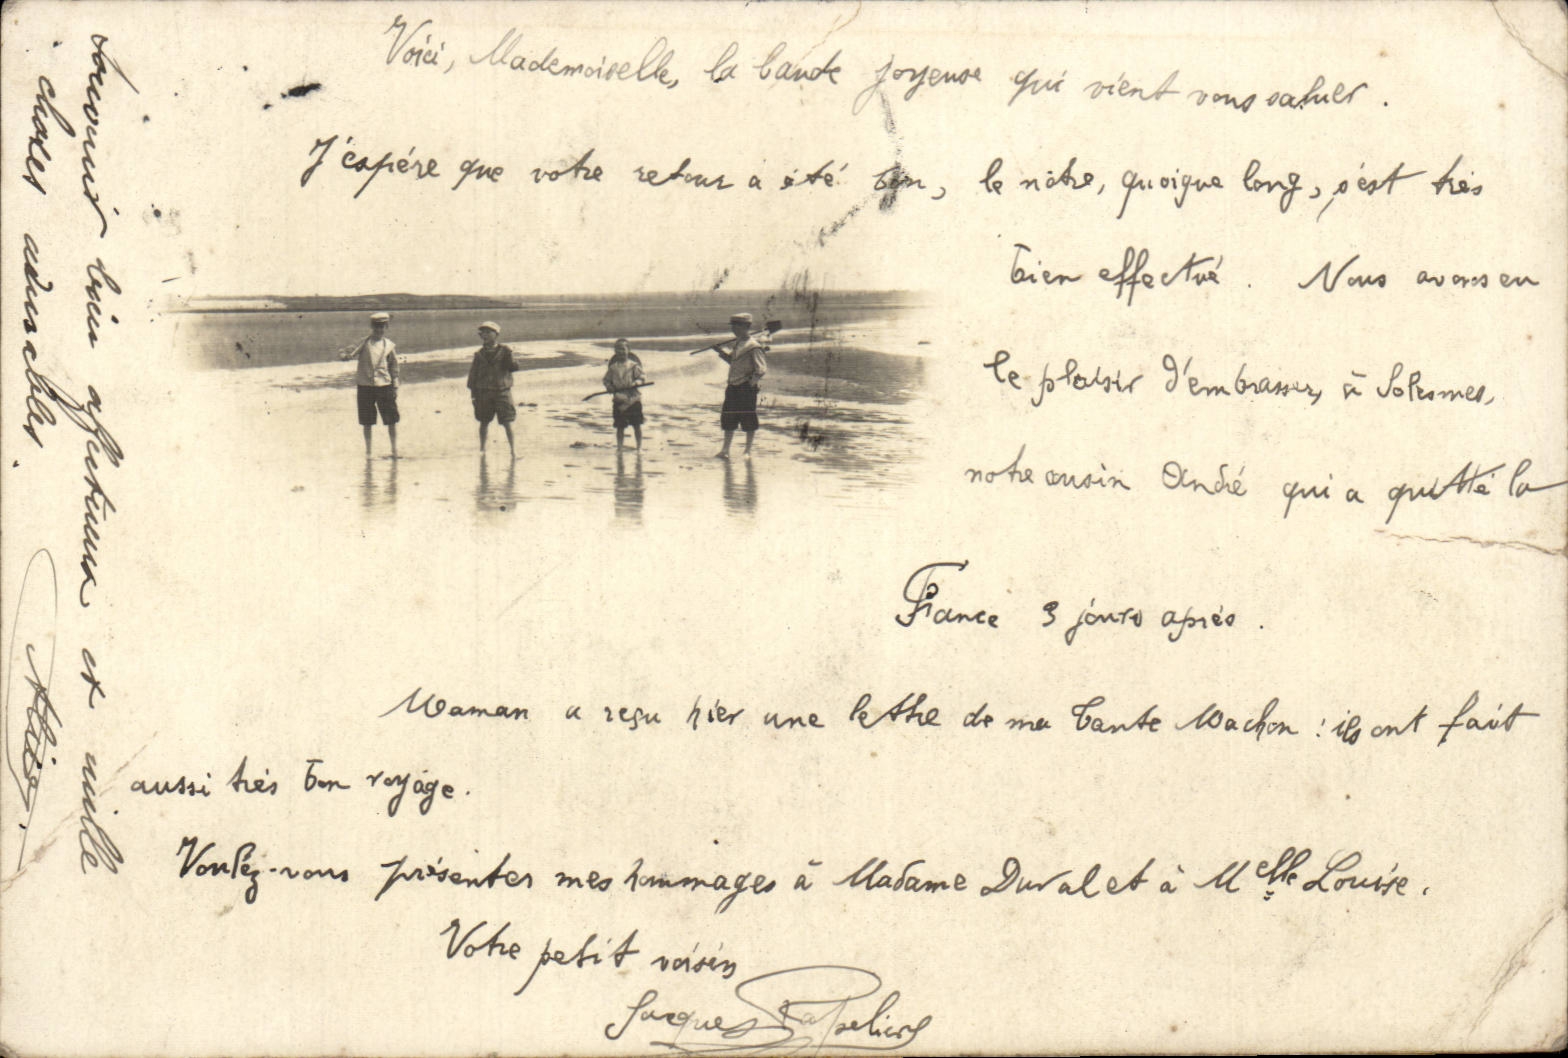 Voici, Mademoiselle, la bande joyeuse qui vient vous saluer.
J'espére que votre retour a été bon, le nôtre, quoique long, s'est très
bien effectué. Nous avons eu
le plaisir d'embrasser, à Solesmes,
notre cousin André qui a quitté la
France 3 jours après.
Maman a reçu hier une lettre de ma tante Machon : ils ont fait
aussi très bon voyage.
Voulez-vous présenter mes hommages à Madame Duval et à Melle Louise.
Votre petit voisin
Jacques
Souvenir bien affectueux et mille
choses aimables.